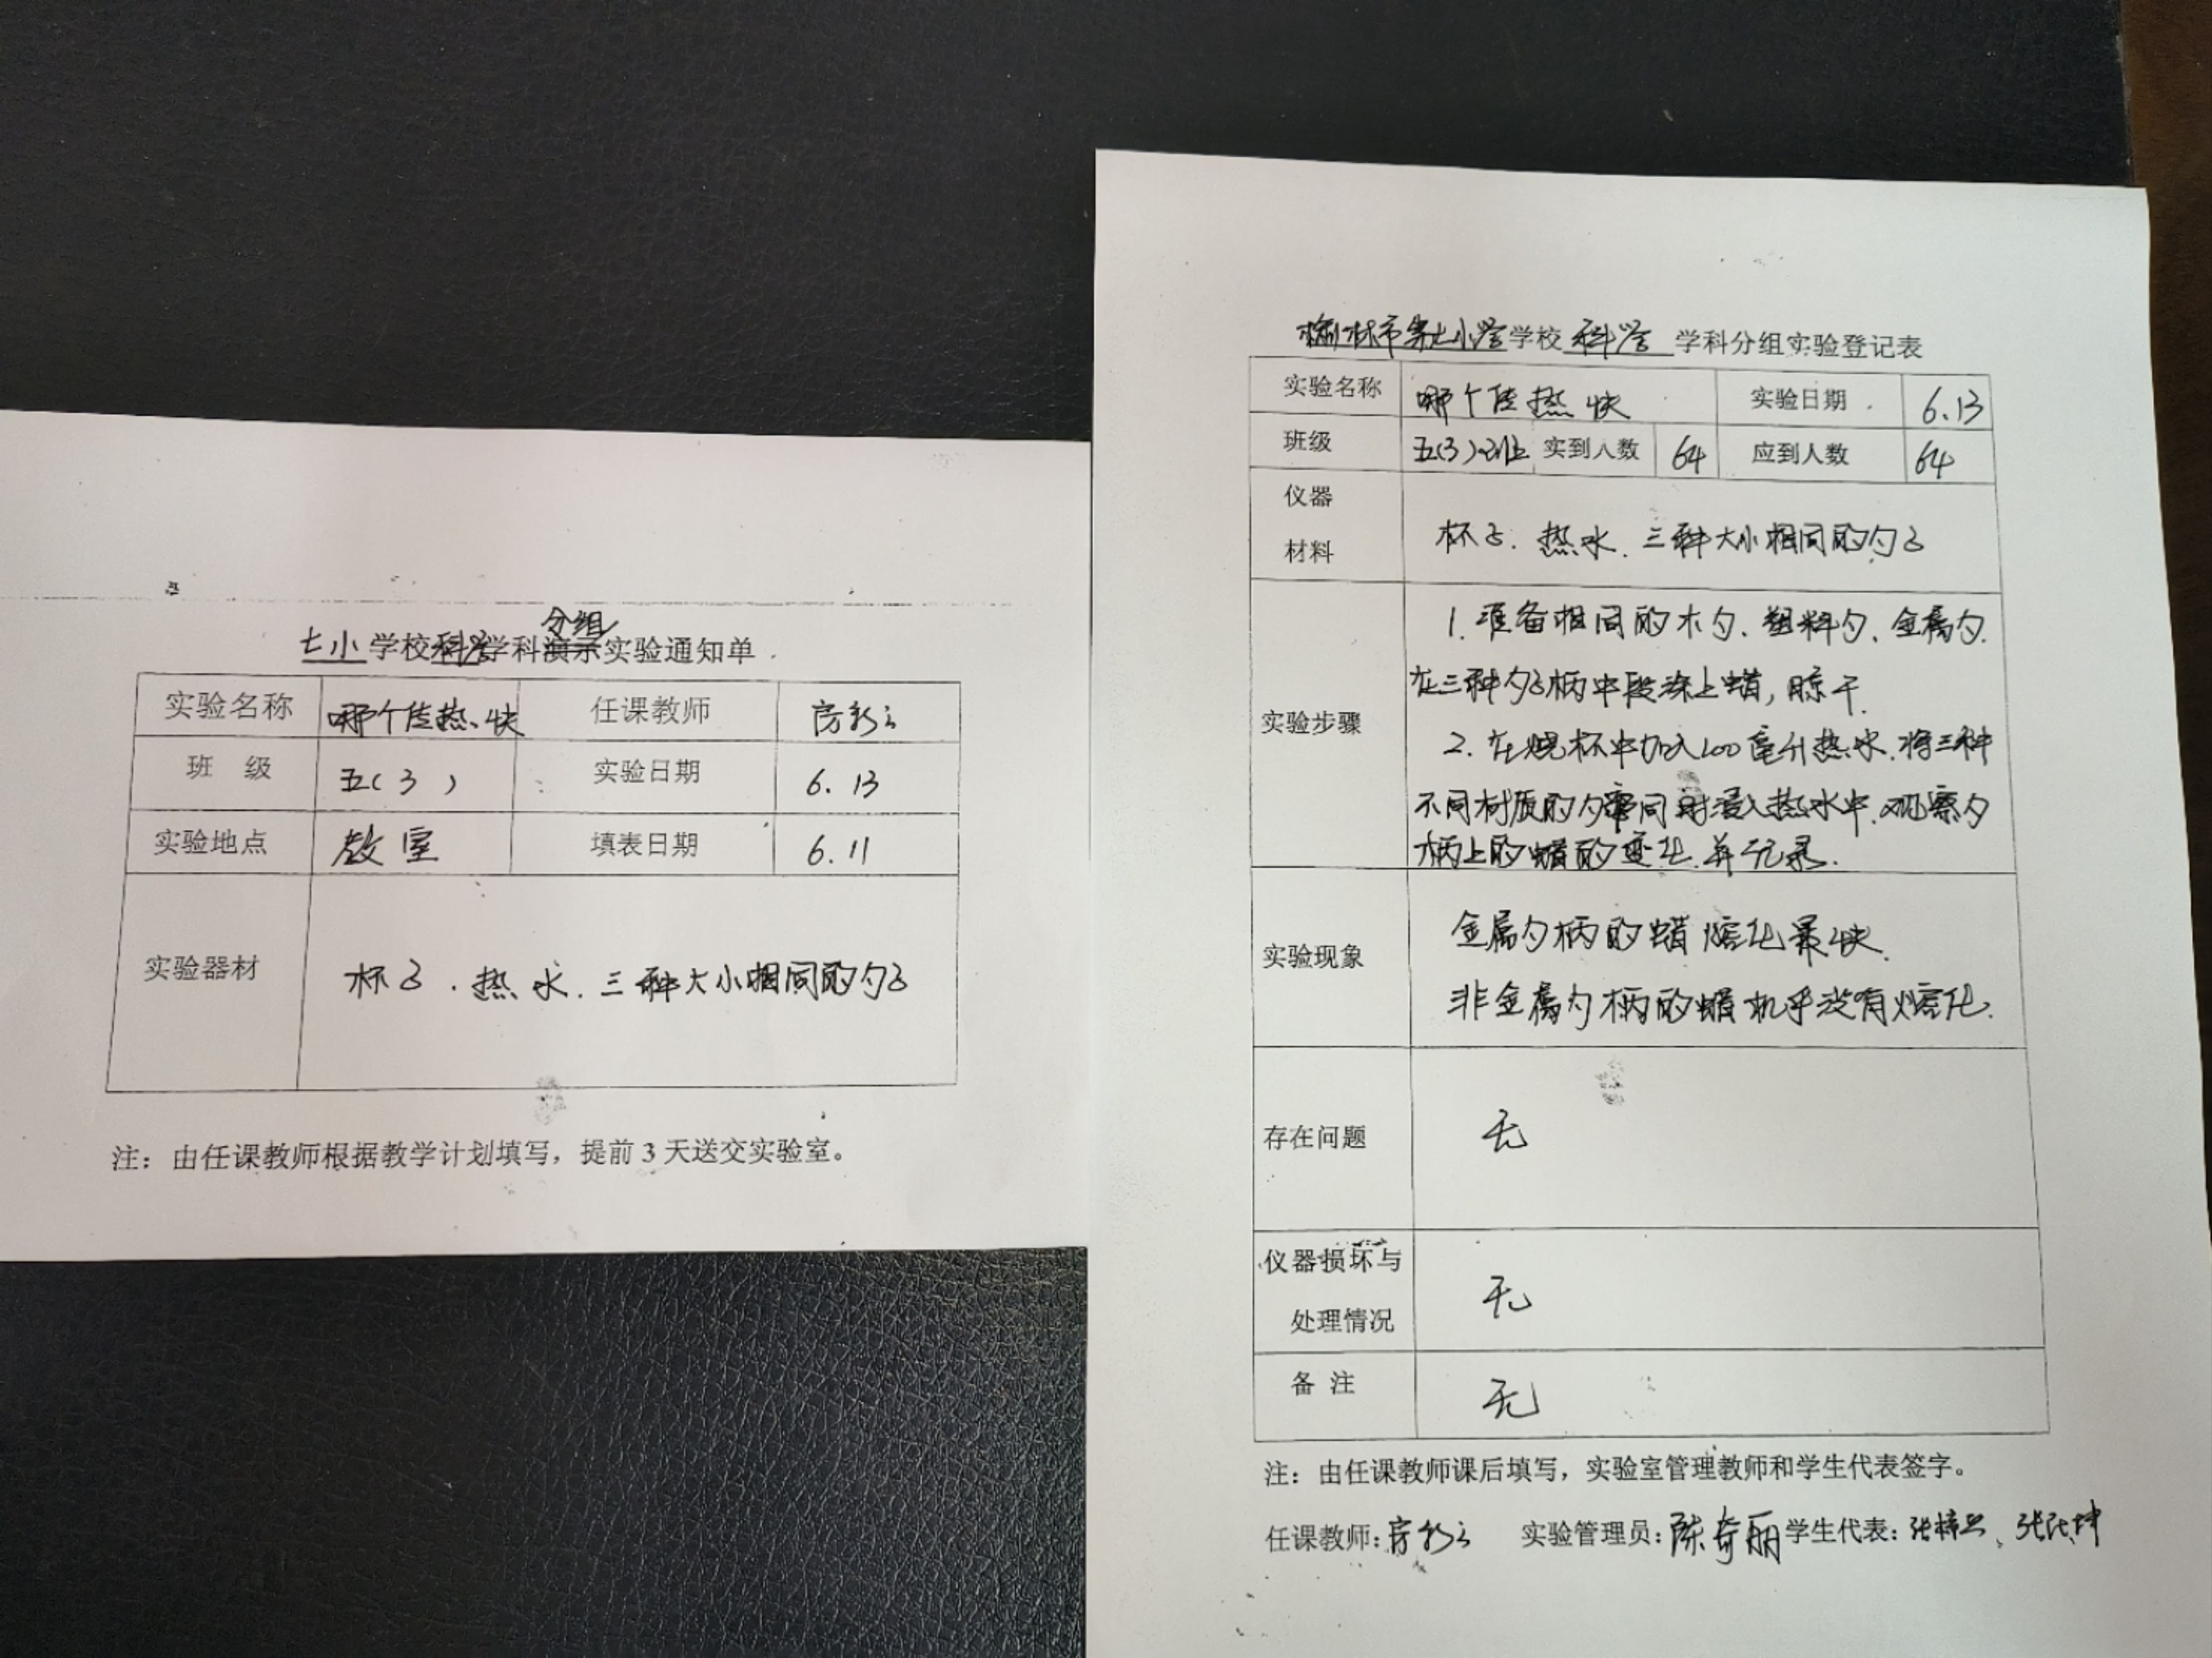 七小学校科学学科分组实验通知单
实验名称 哪个传热快 任课教师
班 级 五(3) 实验日期 6.13
实验地点 教室 填表日期 6.11
实验器材 杯子.热水.三种大小相同的勺子
注：由任课教师根据教学计划填写，提前3天送交实验室。
榆林市第七小学学校科学学科分组实验登记表
实验名称 哪个传热快 实验日期 6.13
班级 五(3)班 实到人数 64 应到人数 64
仪器
材料
杯子.热水.三种大小相同的勺子
实验步骤
1.准备相同的木勺、塑料勺、金属勺.
在三种勺子柄中段涂上蜡,晾干.
2.在烧杯中加入200毫升热水.将三种
不同材质的勺同时浸入热水中.观察勺
柄上的蜡的变化.并记录.
实验现象
金属勺柄的蜡熔化最快.
非金属勺柄的蜡机乎没有熔化.
存在问题 无
仪器损坏与
处理情况
无
备 注 无
注：由任课教师课后填写，实验室管理教师和学生代表签字。
任课教师: 实验管理员:陈奇丽 学生代表: